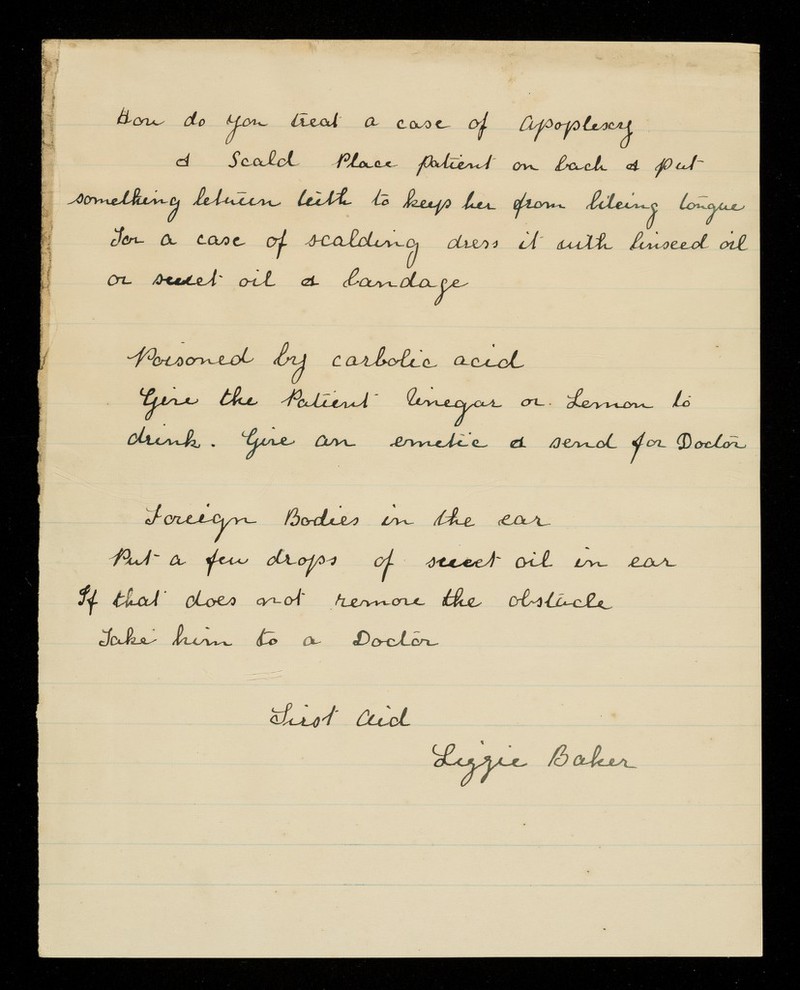 How do you treat a case of Apoplexy
& Scald Place patient on back & put
something between teeth to keep her from biteing tongue
For a case of scalding dress it with linseed oil
or sweet oil & bandage
Poisoned by carbolic acid
Give the Patient Vinegar or Lemon to
drink. Give an emetic & send for Doctor
Foreign Bodies in the ear
Put a few drops of sweet oil in ear
If that does not remove the obstacle
Take him to a Doctor
First Aid
Lizzie Baker